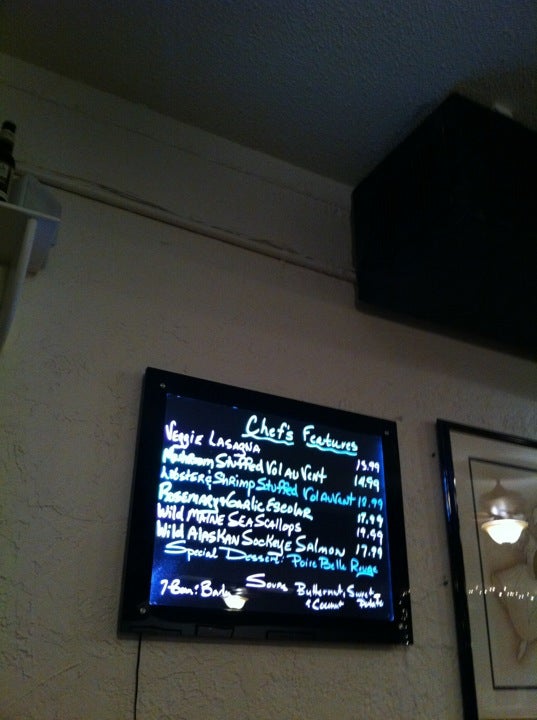 Chef's Features
Veggie Lasagna 13.99
Mushroom Stuffed Vol Au Vent 14.99
Lobster & Shrimp Stuffed Vol Au Vent 18.99
Rosemary & Garlic Escolar 17.99
Wild Maine Sea Scallops 19.99
Wild Alaskan Sockeye Salmon 17.99
Special Dessert: Poire Belle Rouge
Soups
7-Bean: Barley Butternut, Sweet
& Coconut Potato